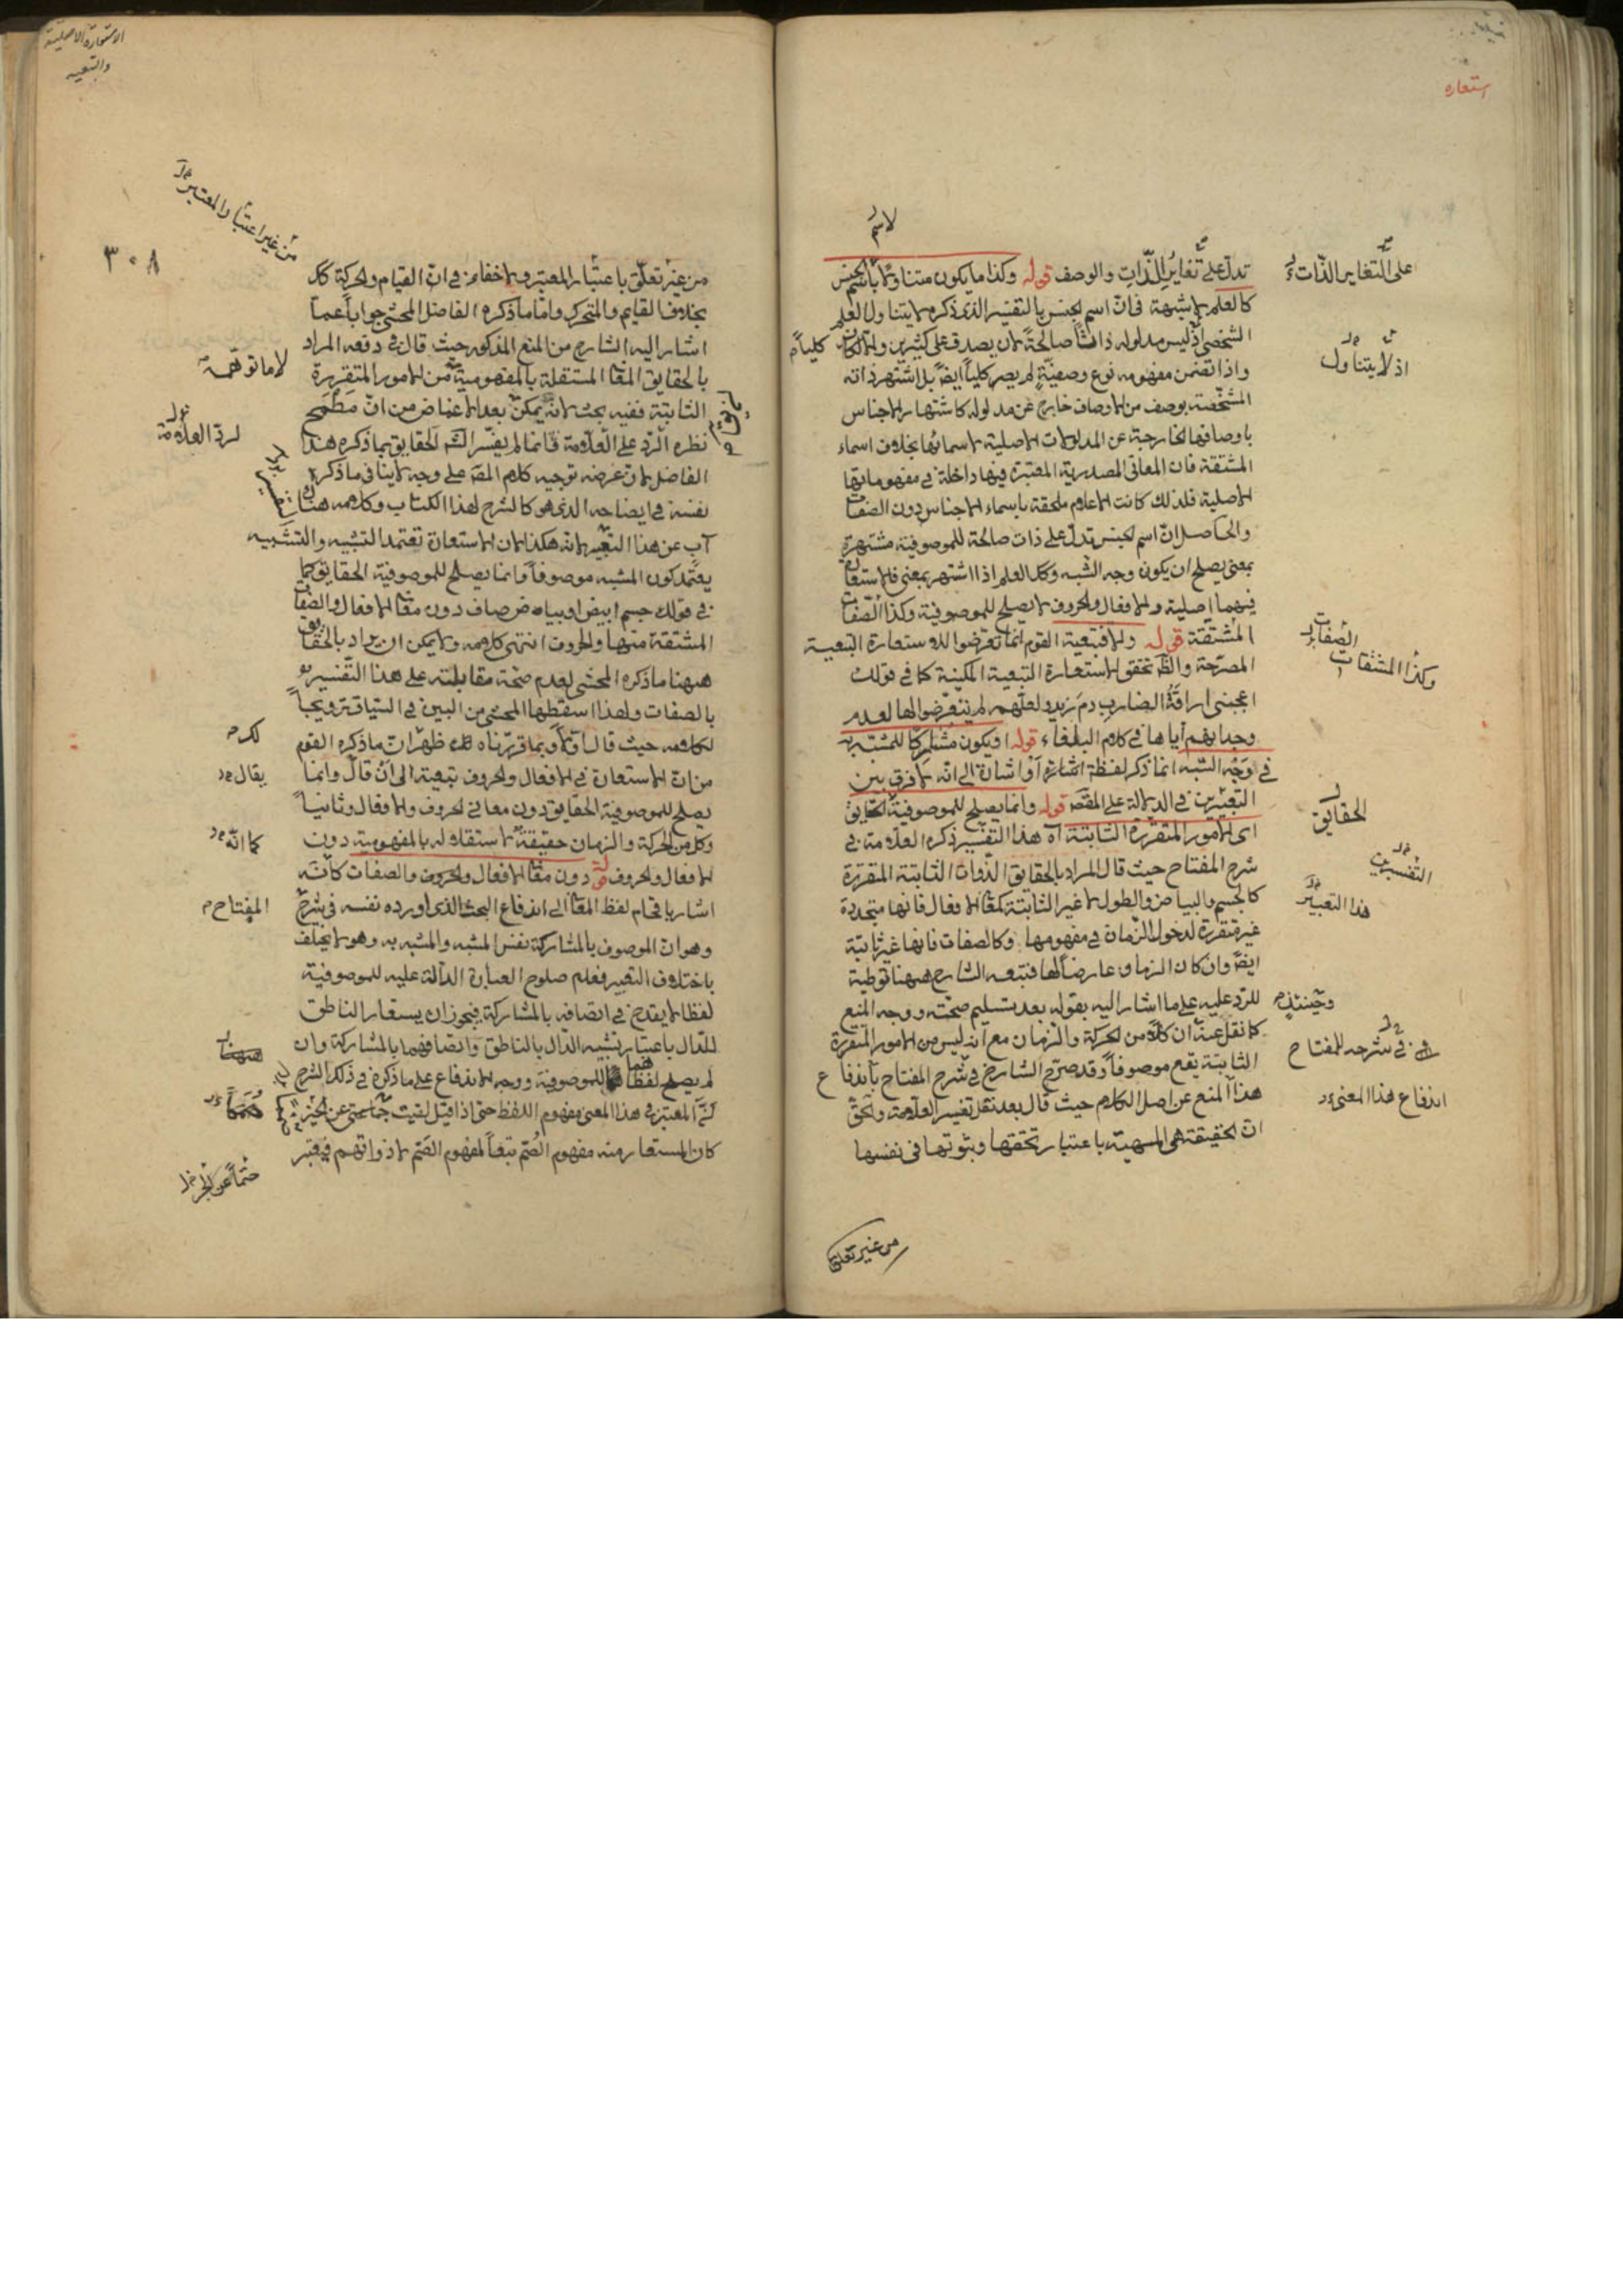 استعاره
لاسم
تدل على تغاير الذات والوصف قوله وكذا ما يكون متناولا باسم الجنس
على التغاير الذات
كالعلم لا شبهة فان اسم الجنس بالتفسير الذى ذكره لا يتناول العلم
الشخصى اذ ليس مدلوله ذاتا صالحة لان يصدق على كثيرين والا لكان كليا
اذ لا يتناول
واذا تضمن مفهومه نوع وصفية لم يصر كليا ايض بل اشتهر ذاته
المشخصة بوصف من الاوصاف خارج عن مدلوله كاشتهار الاجناس
باوصافها الخارجة عن المدلولات الاصلية لاسمائها بخلاف اسماء
المشتقة فان المعانى المصدرية المعتبرة فيها داخلة فى مفهوماتها
الاصلية فلذلك كانت الاعلام ملحقة باسماء الاجناس دون الصفات
والحاصل ان اسم الجنس تدل على ذات صالحة للموصوفية مشتهرة
بمعنى يصلح ان يكون وجه الشبه وكك العلم اذا اشتهر بمعنى فالاستعارة
فيهما اصلية والافعال والحروف لا يصلح للموصوفية وكذا الصفات
الصفات
المشتقة قوله والا فتبعية القوم انما تعرضوا للاستعارة التبعية
وكذا المشتقات
المصرحة والظ تحقق الاستعارة التبعية المكنية كما فى قولك
اعجبنى اراقة الضارب دم زيد ولعلهم لم يتعرضوا لها لعدم
وجدانهم اياها فى كلام البلغاء قوله او يكون مشاركا للمشبه به
فى وجه الشبه انما ذكر لفظة اشارة او اشارة الى انه لا فرق بين
التعبيرين فى الدلالة على المقص قوله وانما يصلح للموصوفية الحقايق
الحقايق
اى الامور المتقررة الثابتة اه هذا التفسير ذكره العلامة فى
التفسيرين
شرح المفتاح حيث قال المراد بالحقايق الذوات الثابتة المتقررة
كالجسم والبياض والطول لا غير الثابتة كمعانى الافعال فانها متجددة
هذا التعبير
غير متقررة لدخول الزمان فى مفهومها وكالصفات فانها غير ثابتة
ايض وان كان الزمان عارضا لها فتبعه الشارح ههنا توطية
للرد عليه على ما اشار اليه بقوله بعد تسليم صحته ووجه المنع
وحينئذ
كما نقل عنه ان كلا من الحركة والزمان مع انه ليس من الامور المتقررة
فى شرحه للمفتاح
الثابتة يقع موصوفا وقد صرح الشارح فى شرح المفتاح باندفاع
هذا المنع عن اصل الكلام حيث قال بعد نقل تفسير العلامة والحق
اندفاع هذا المعنى
ان الحقيقة هى المهية باعتبار تحققها وثبوتها فى نفسها
من غير تعلق
الاستعارة الاصلية
والتبعية
من غير اعتبار المعتبر
٣٠٨
من غير تعلق باعتبار المعتبر ولا خفاء فى ان القيام والحركة كك
بخلاف القايم والمتحرك واما ما ذكره الفاضل المحشى جوابا عما
اشار اليه الشارح من المنع المذكور حيث قال فى دفعه المراد
بالحقايق المعانى المستقلة بالمفهومية من الامور المتقررة
لا ما توهمه
الثابتة ففيه بحث لانه يمكن بعد الاغماض من ان مطمح
نظره الرد على العلامة فانما لم يفسر الش الحقايق بما ذكره هذا
لرد العلامة
الفاضل لان غرضه توجيه كلام المص على وجه لا ينافى ما ذكره
نفسه فى ايضاحه الذى هو كالشرح لهذا الكتاب وكلامه هناك
آب عن هذا التعبير لانه هكذا لان الاستعارة تعتمد التشبيه والتشبيه
يعتمد كون المشبه موصوفا وانما يصلح للموصوفية الحقايق كما
فى قولك جسم ابيض او بياض صاف دون معانى الافعال والصفات
المشتقة منها والحروف انتهى كلامه ولا يمكن ان يراد بالحقايق
ههنا ما ذكره المحشى لعدم صحة مقابلته على هذا التفسير
بالصفات ولهذا اسقطها المحشى من البين فى السياق ترويجا
لكلامه حيث قال اولا وبما قررناه لك ظهر ان ما ذكره القوم
لك
من ان الاستعارة فى الافعال والحروف تبعية الى ان قال وانما
يقال
يصلح للموصوفية الحقايق دون معانى الحروف والافعال وثانيا
وكل من الحركة والزمان حقيقة لاستقلاله بالمفهومية دون
كما انه
الافعال والحروف قوله دون معانى الافعال والحروف والصفات كانه
اشار باقحام لفظ المعانى الى اندفاع البحث الذى اورده نفسه فى شرح
المفتاح
وهو ان الموصوف بالمشاركة نفس المشبه والمشبه به وهو لا يختلف
باختلاف التعبير فعلم صلوح العبارة الدالة عليه للموصوفية
لفظا لا يقدح فى اتصافه بالمشاركة فيجوز ان يستعار الناطق
للدال باعتبار تشبيه الدال بالناطق واتصافهما بالمشاركة وان
لم يصلح لفظهما للموصوفية ووجه الاندفاع على ما ذكره فى ذلك الشرح
ان المعتبر فى هذا المعنى مفهوم اللفظ حتى اذا قيل لقيت صما عن الخير
كان المستعار منه مفهوم الصم تبعا لمفهوم الصمم لا ذواتهم فيعتبر
صما عن الخير